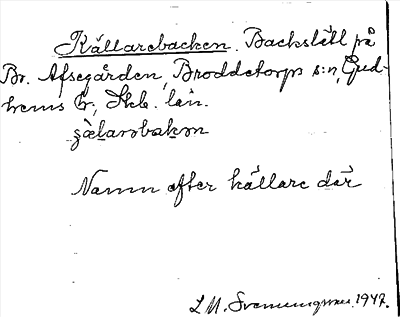 Källarebacken. Backslätt på
Br. Afsegården, Broddetorps s:n, Gud-
hems hr, Skb. län.
Namn efter källare där
1947.